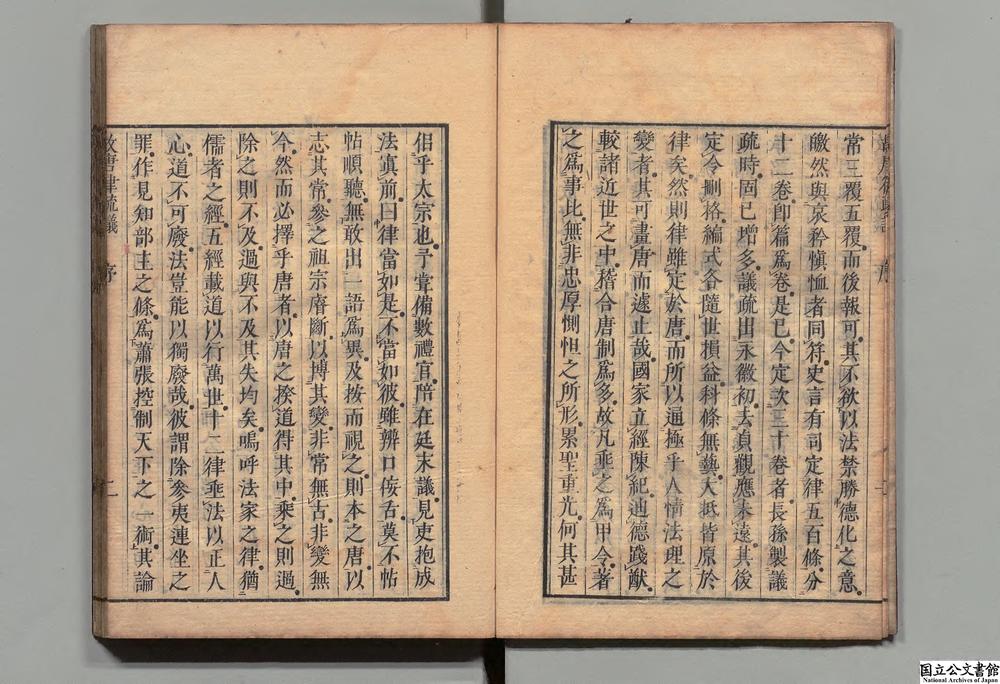 常三覆五覆而後報可其不欲以法禁勝德化之意
皦然與哀矜愼恤者同符史言有司定律五百條分
十二卷卽篇爲卷是已今定次三十卷者長孫製議
疏時固已增多議疏出永徽初去貞觀應未遠其後
定令刪格編式各隨世損益科條無藝大抵皆原於
律矣然則律雖定於唐而所以通極乎人情法理之
變者其可畫唐而遽止哉國家立經陳紀迪德踐猷
較諸近世之中稽合唐制爲多故凡垂之爲甲令著
之爲事比無非忠厚惻怛之所形累聖重光何其甚
侶乎太宗也予嘗備數禮官陪在廷末議見吏抱成
法寘前曰律當如是不當如彼雖辨口佞舌莫不帖
帖順聽無敢出一語爲異及按而視之則本之唐以
志其常參之祖宗睿斷以摶其變非常無古非變無
今然而必擇乎唐者以唐之揆道得其中乘之則過
除之則不及過與不及其失均矣嗚呼法家之律猶
儒者之經五經載道以行萬世十二律垂法以正人
心道不可廢法豈能以獨廢哉彼謂除參夷連坐之
罪作見知部主之條爲蕭張控制天下之一術其論
故唐律疏議
序
二
国立公文書館
National Archives of Japan